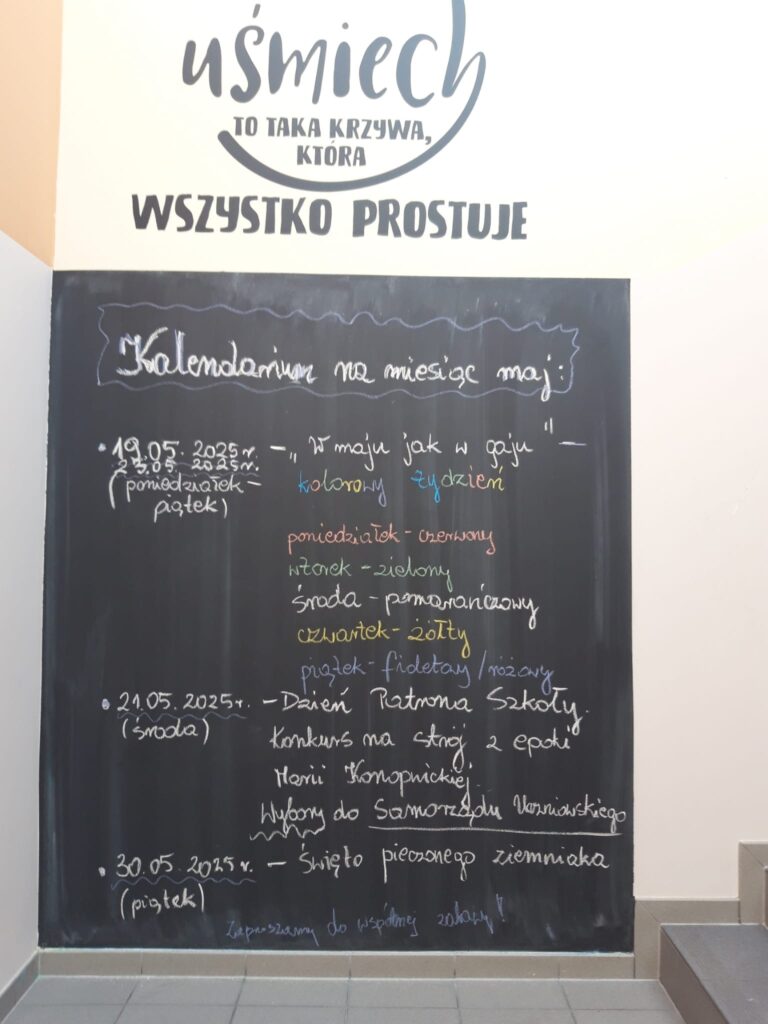 uśmiech
TO TAKA KRZYWA,
KTÓRA
WSZYSTKO PROSTUJE
Kalendarium na miesiąc maj:
• 19.05. 2025 r. – „W maju jak w gaju" –
23.05 2025r. kolorowy tydzień
(poniedziałek –
piątek)
poniedziałek - czerwony
wtorek - zielony
środa - pomarańczowy
czwartek - żółty
piątek - fioletowy / różowy
• 21.05. 2025r. – Dzień Patrona Szkoły.
(środa) Konkurs na strój z epoki
Marii Konopnickiej.
Wybory do Samorządu Uczniowskiego
• 30.05. 2025 r. – Święto pieczonego ziemniaka
(piątek)
Zapraszamy do wspólnej zabawy!